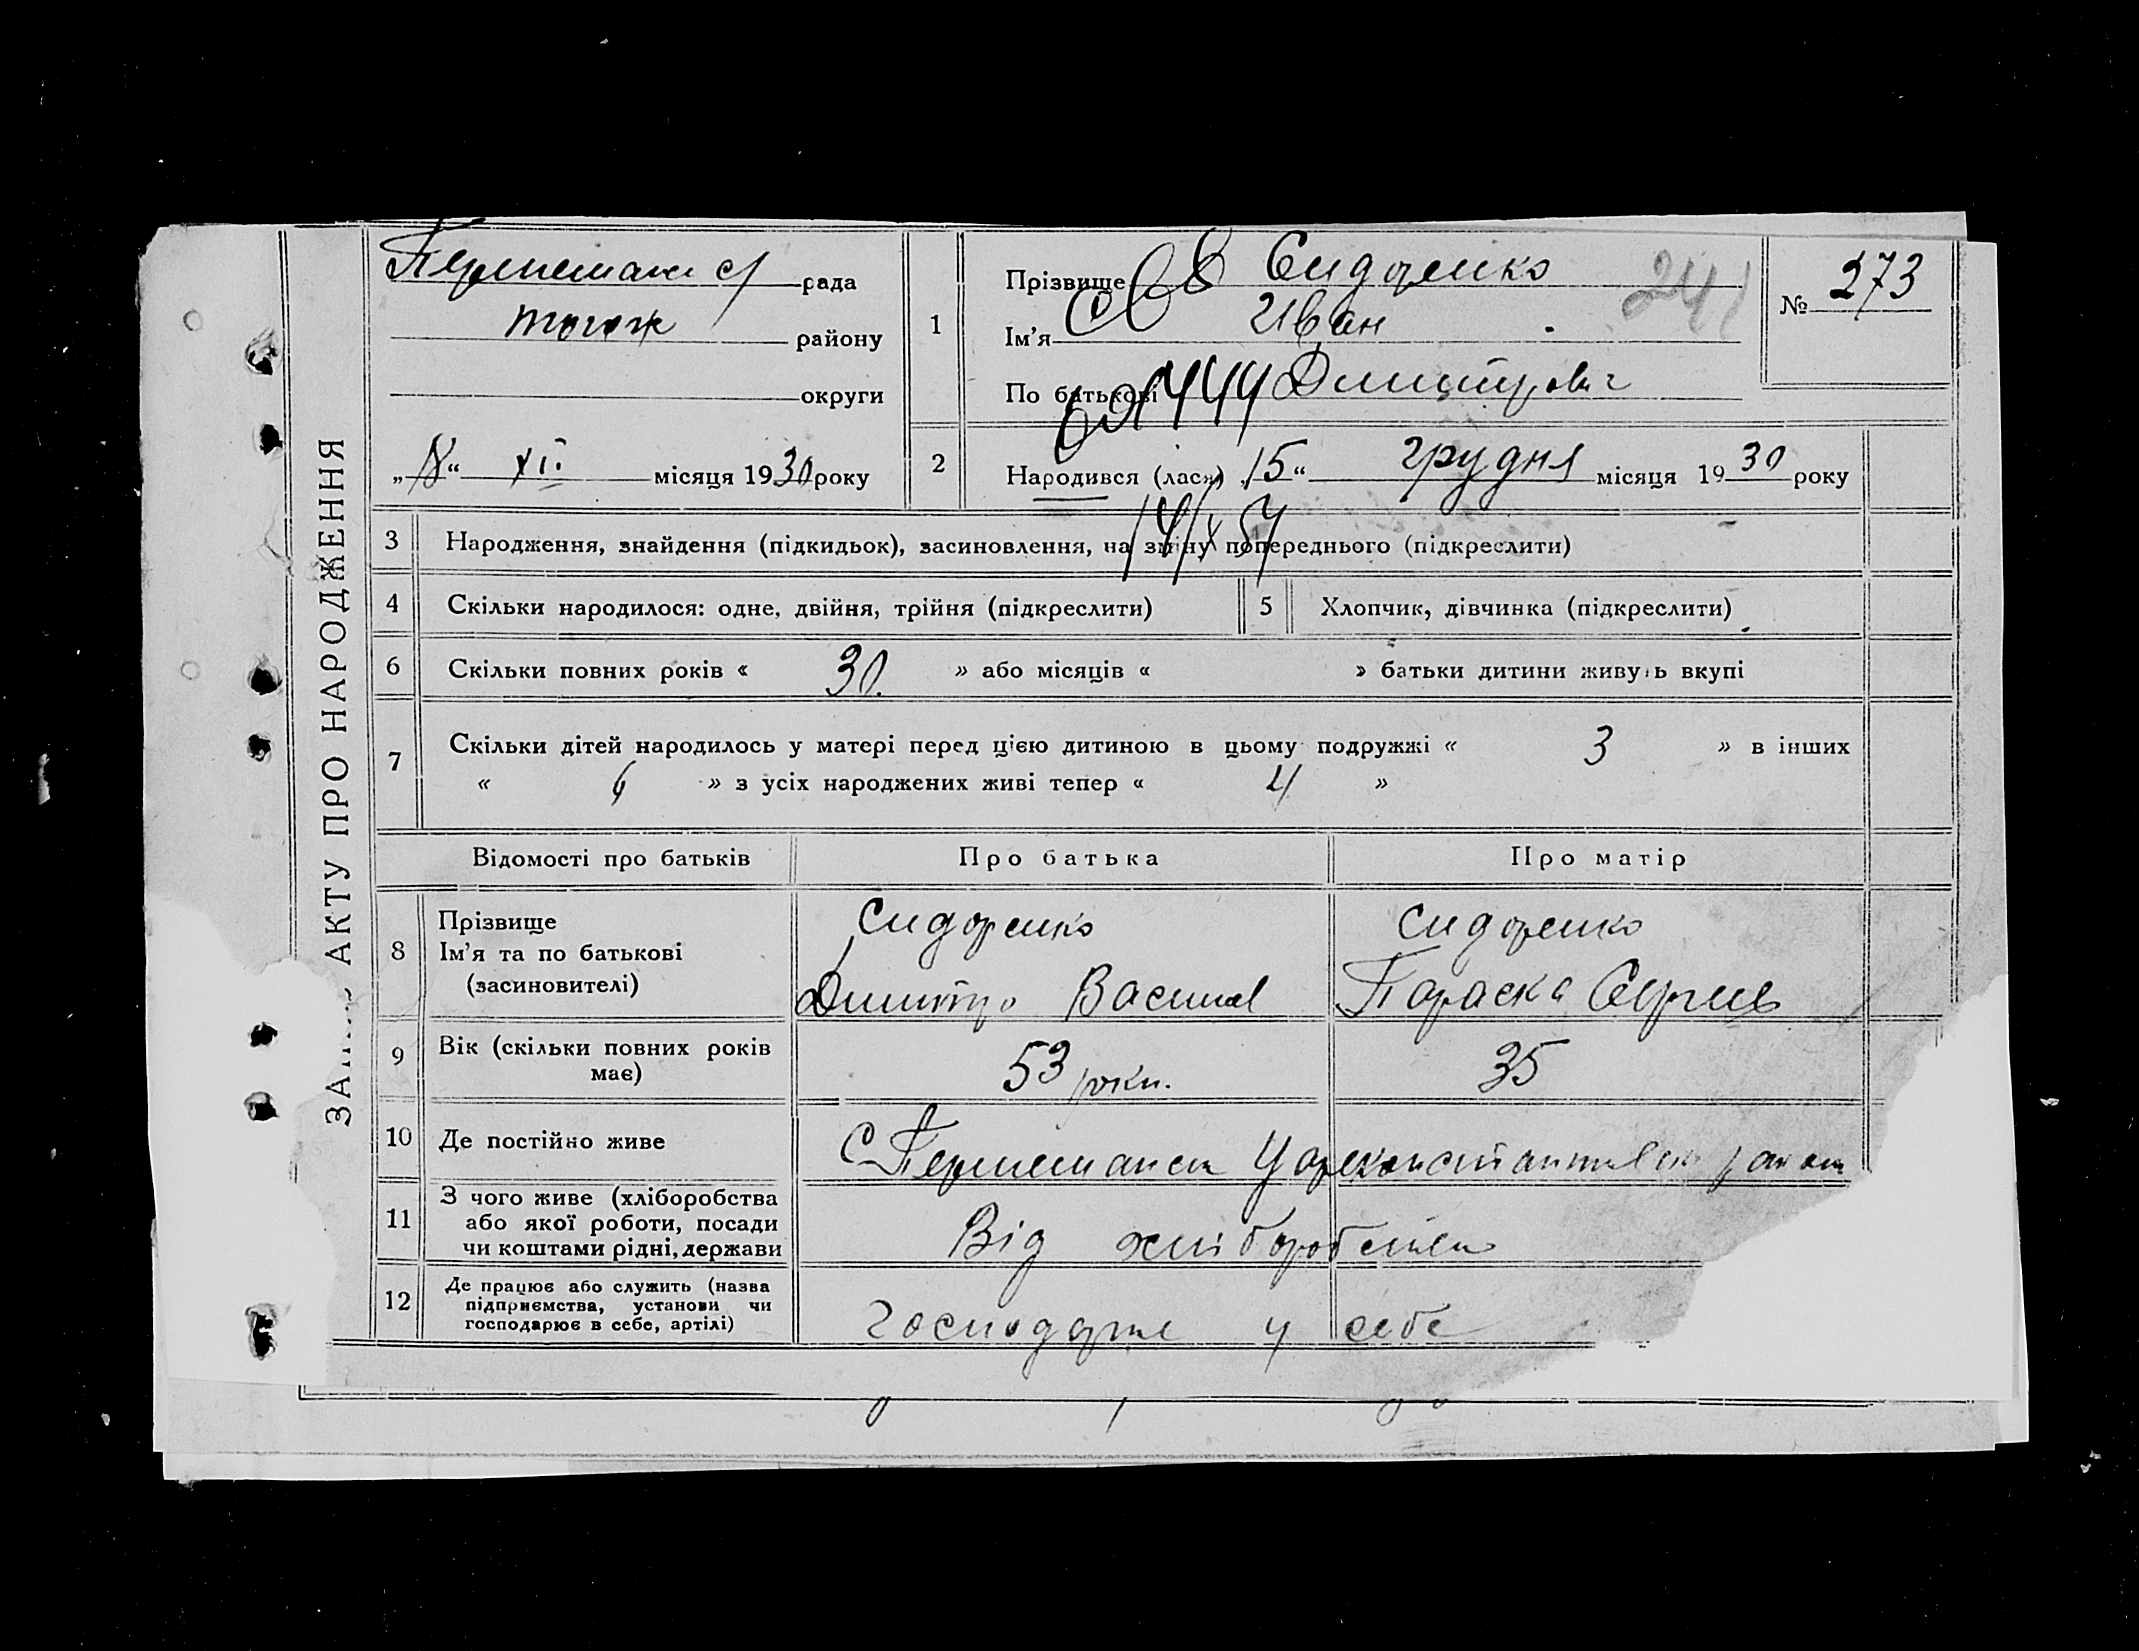 ЗАП АКТУ ПРО НАРОДЖЕННЯ
рада
району
округи
„18“ XII місяця 1930 року
1
Прізвище Сидоренко
Ім’я Иван
По батькові Дмитрович
241
№ 273
2
Народився (лася) „15“ грудня місяця 1930 року
3 Народження, знайдення (підкидьок), засиновлення, на зміну попереднього (підкреслити)
4 Скільки народилося: одне, двійня, трійня (підкреслити) 5 Хлопчик, дівчинка (підкреслити)
6 Скільки повних років « 30. » або місяців « » батьки дитини живуть вкупі
7 Скільки дітей народилось у матері перед цією дитиною в цьому подружжі « 3 » в інших
« » з усіх народжених живі тепер « 4 »
Відомості про батьків Про батька Про матір
8 Прізвище
Ім’я та по батькові
(засиновителі)
Сидоренко
Дмитро Васил
Сидоренко
Параска Сергіев
9 Вік (скільки повних років
має)
53 роки.
35
10 Де постійно живе
11 З чого живе (хліборобства
або якої роботи, посади
чи коштами рідні, держави
Від хліборобства
12 Де працює або служить (назва
підприємства, установи чи
господарює в себе, артілі)
Господарює у себе